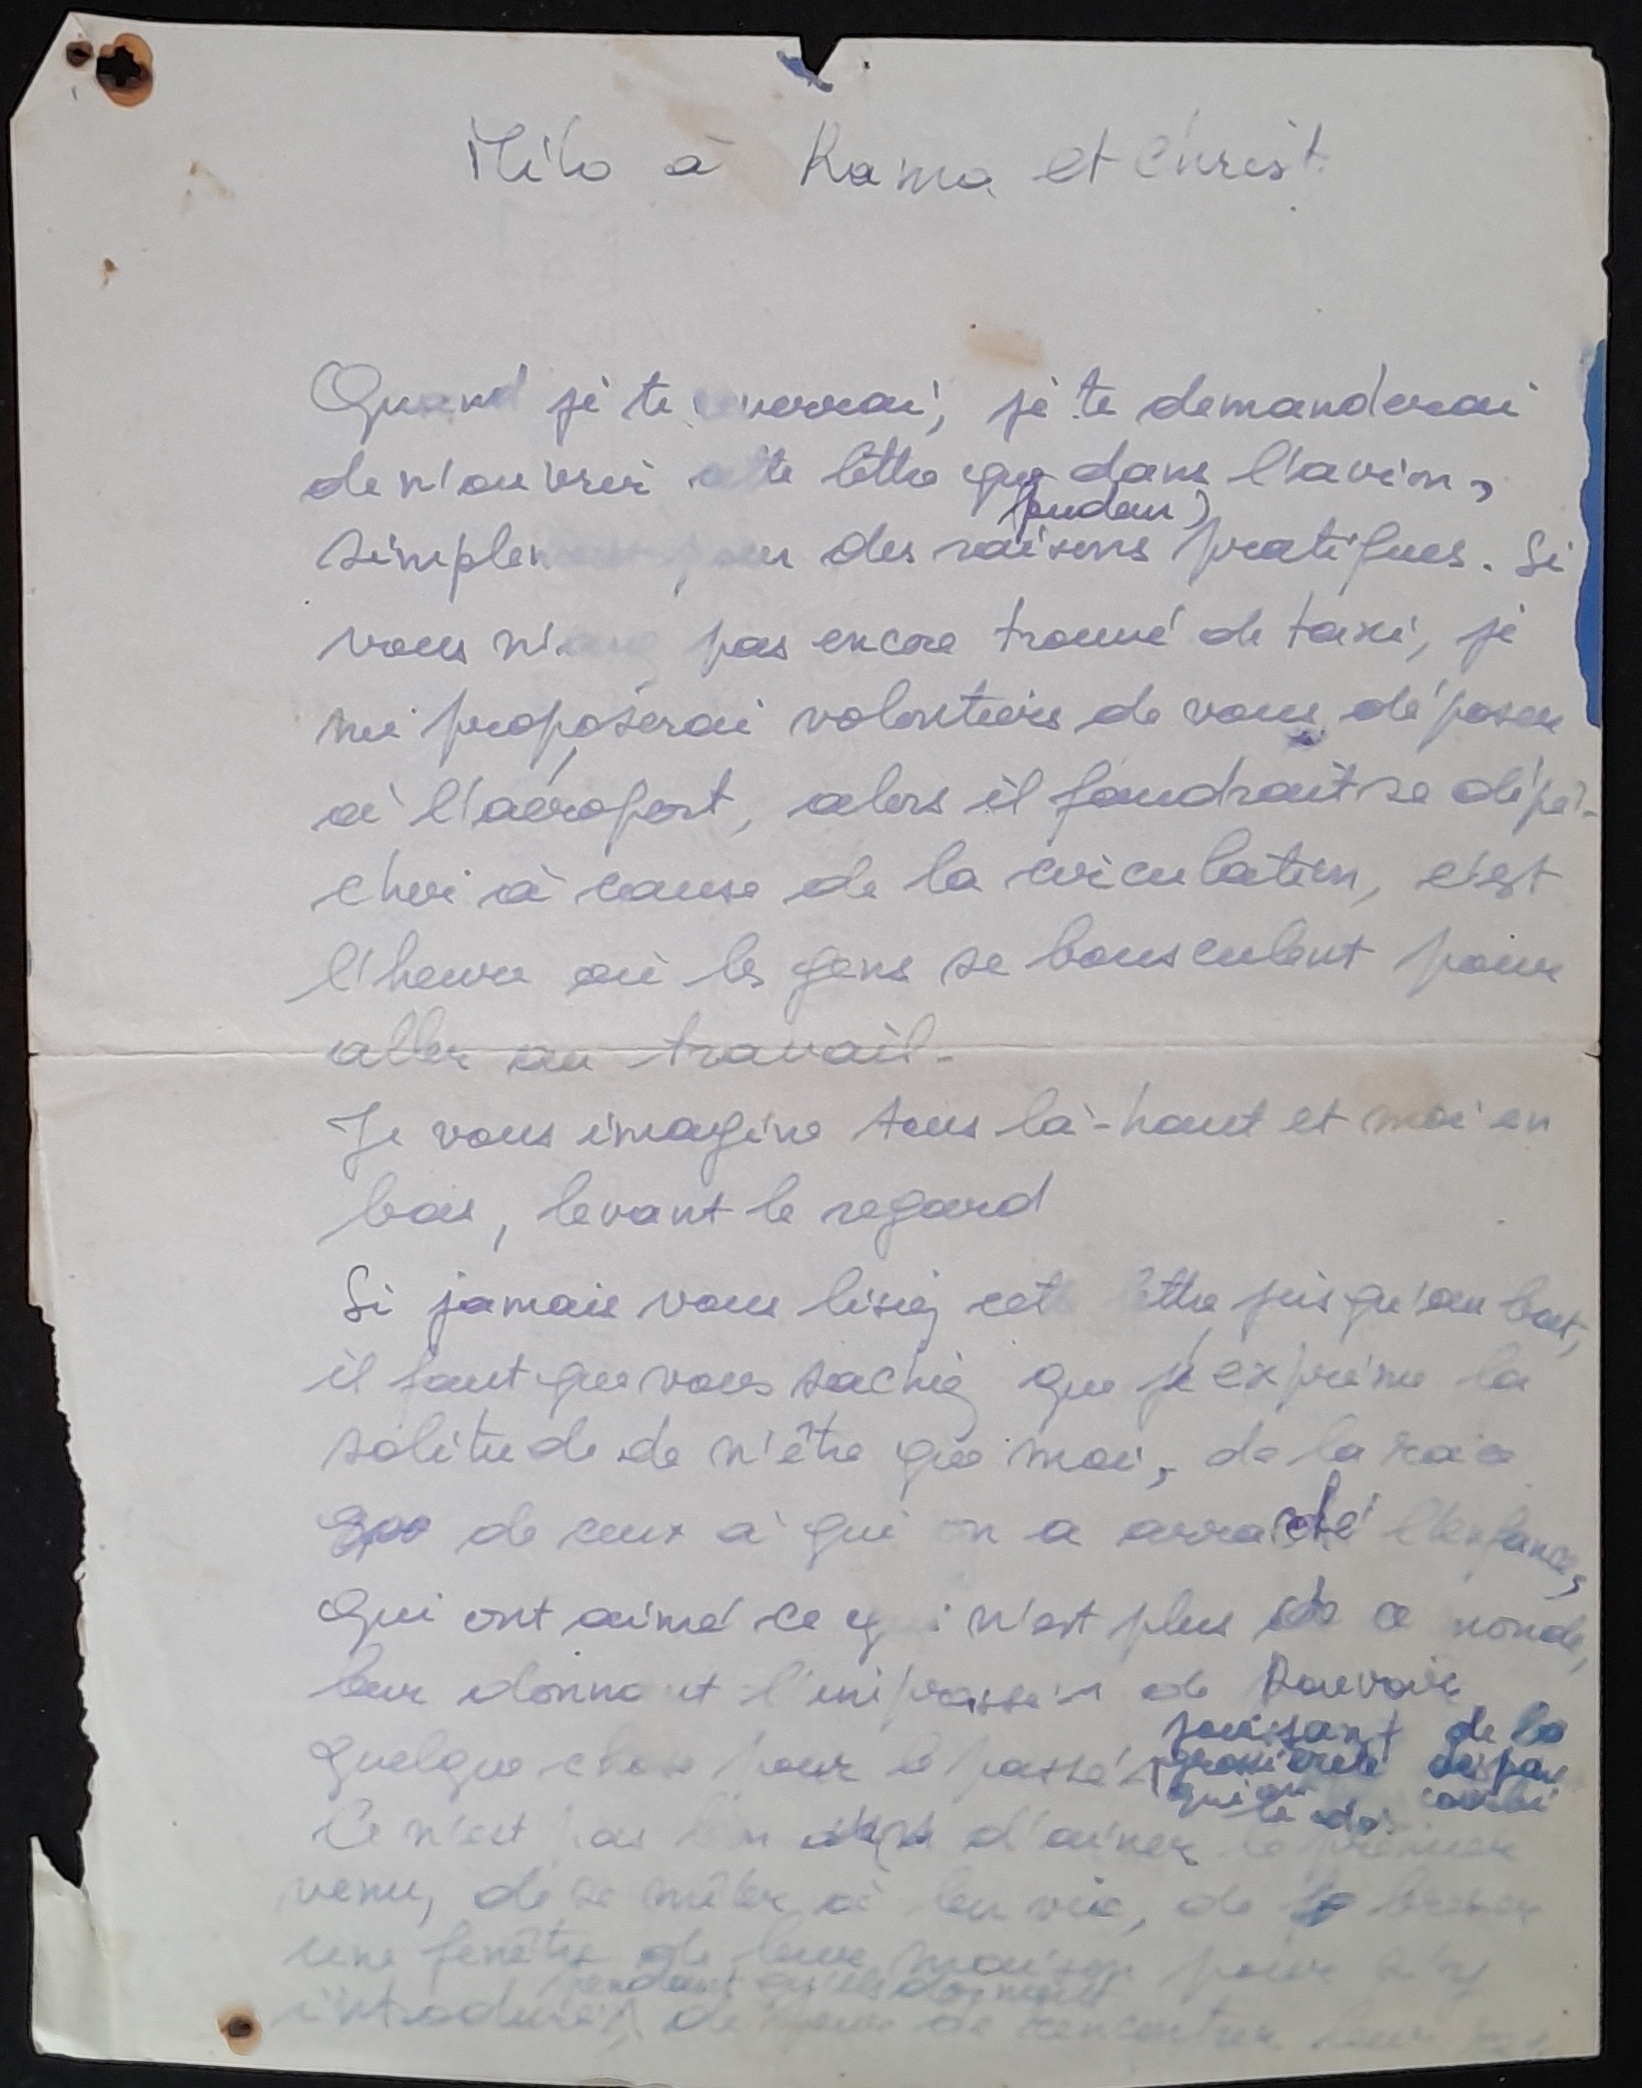 Milo à Rama et Christ.
Quand je te verrai, je te demanderai
de n'ouvrir cette lettre que dans l'avion,
(pudeur)
simplement pour des raisons pratiques. Si
vous n'avez pas encore trouvé de taxi, je
me proposerai volontiers de vous déposer
à l'aéroport, alors il faudrait se dépê-
cher à cause de la circulation, c'est
l'heure où les gens se bousculent pour
aller au travail.
Je vous imagine tous là-haut et moi en
bas, levant le regard
Si jamais vous lisiez cette lettre jusqu'au bout,
il faut que vous sachiez que j'exprime la
solitude de n'être que moi, de la race
de ceux à qui on a arraché l'enfance,
qui ont aimé ce qui n'est plus de ce monde,
leur donnant l'impression de pouvoir
quelque chose pour le passé
jouissant de la
grossièreté
qui
Ce n'est pas d'aimer le premier
venu, de se mêler à leur vie, de briser
une fenêtre de leur maison pour s'y
pendant qu'ils dorment
introduire, de rencontrer leur